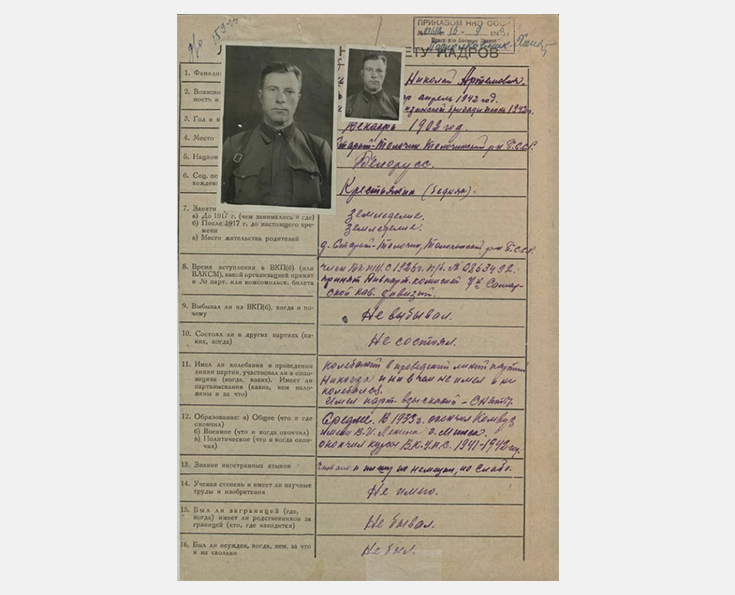 ПРИКАЗОМ НКО СССР
ЕТУ КАДРОВ
1. Фамили
Николай Артемович.
2. Воинско
ность и
апрель 1942 год.
бригады
3. Год и м
Декабрь 1903 год.
4. Место
Старый-Толочин Толочинский р-н Б.С.С.Р.
5. Национ
Белорусс.
6. Соц. по
хождени
Крестьянин (бедняк).
7. Заняти
а) До 1917 г. (чем занимались и где)
Земледелие.
б) После 1917 г. до настоящего вре-
мени
Земледелие.
в) Место жительства родителей
д. Старый-Толочин, Толочинский р-н Б.С.С.Р.
8. Время вступления в ВКП(б) (или
ВЛКСМ), какой организацией принят
и № парт. или комсомольск. билета
член с 1926г. п/б. №
принят комиссией
кав. дивизии.
9. Выбывал ли из ВКП(б), когда и по-
чему
Не выбывал.
10. Состоял ли в других партиях (ка-
ких, когда)
Не состоял.
11. Имел ли колебания в проведении
линии партии, участвовал ли в оппо-
зициях (когда, каких). Имеет ли
партвзыскания (какие, кем нало-
жены и за что)
колебаний в проведении линии партии
Никогда и ни в чем не имел и не
колебался.
Имел парт. взыскание - снято.
12. Образование: а) Общее (что и где
окончил)
б) Военное (что и когда окончил)
в) Политическое (что и когда окон-
чил)
Среднее. В 1933г. окончил Комвуз
имени В.И. Ленина г. Минск.
окончил курсы 1941-1942
13. Знание иностранных языков
читаю и пишу по немецки, но слабо.
14. Ученая степень и имеет ли научные
труды и изобретения
Не имею.
15. Был ли заграницей (где,
когда) имеет ли родственников за
границей (кто, где находится)
Не бывал.
16. Был ли осужден, когда, кем, за что
и на сколько
Не был.